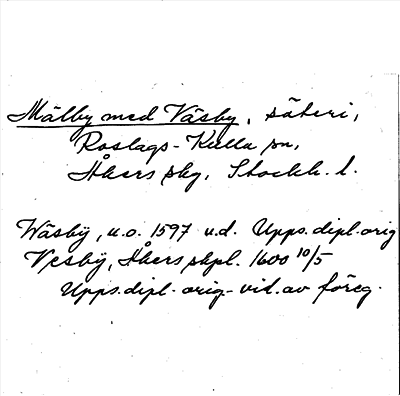 Mälby med Väsby, säteri,
Roslags-Kulla sn,
Åkers skg, Stockh. l.
Wäsbÿ, u.o. 1597 u.d. Upps. dipl. orig
Vesbÿ, Åkers skpl. 1600 10/5
Upps. dipl. orig.- vid. av föreg.